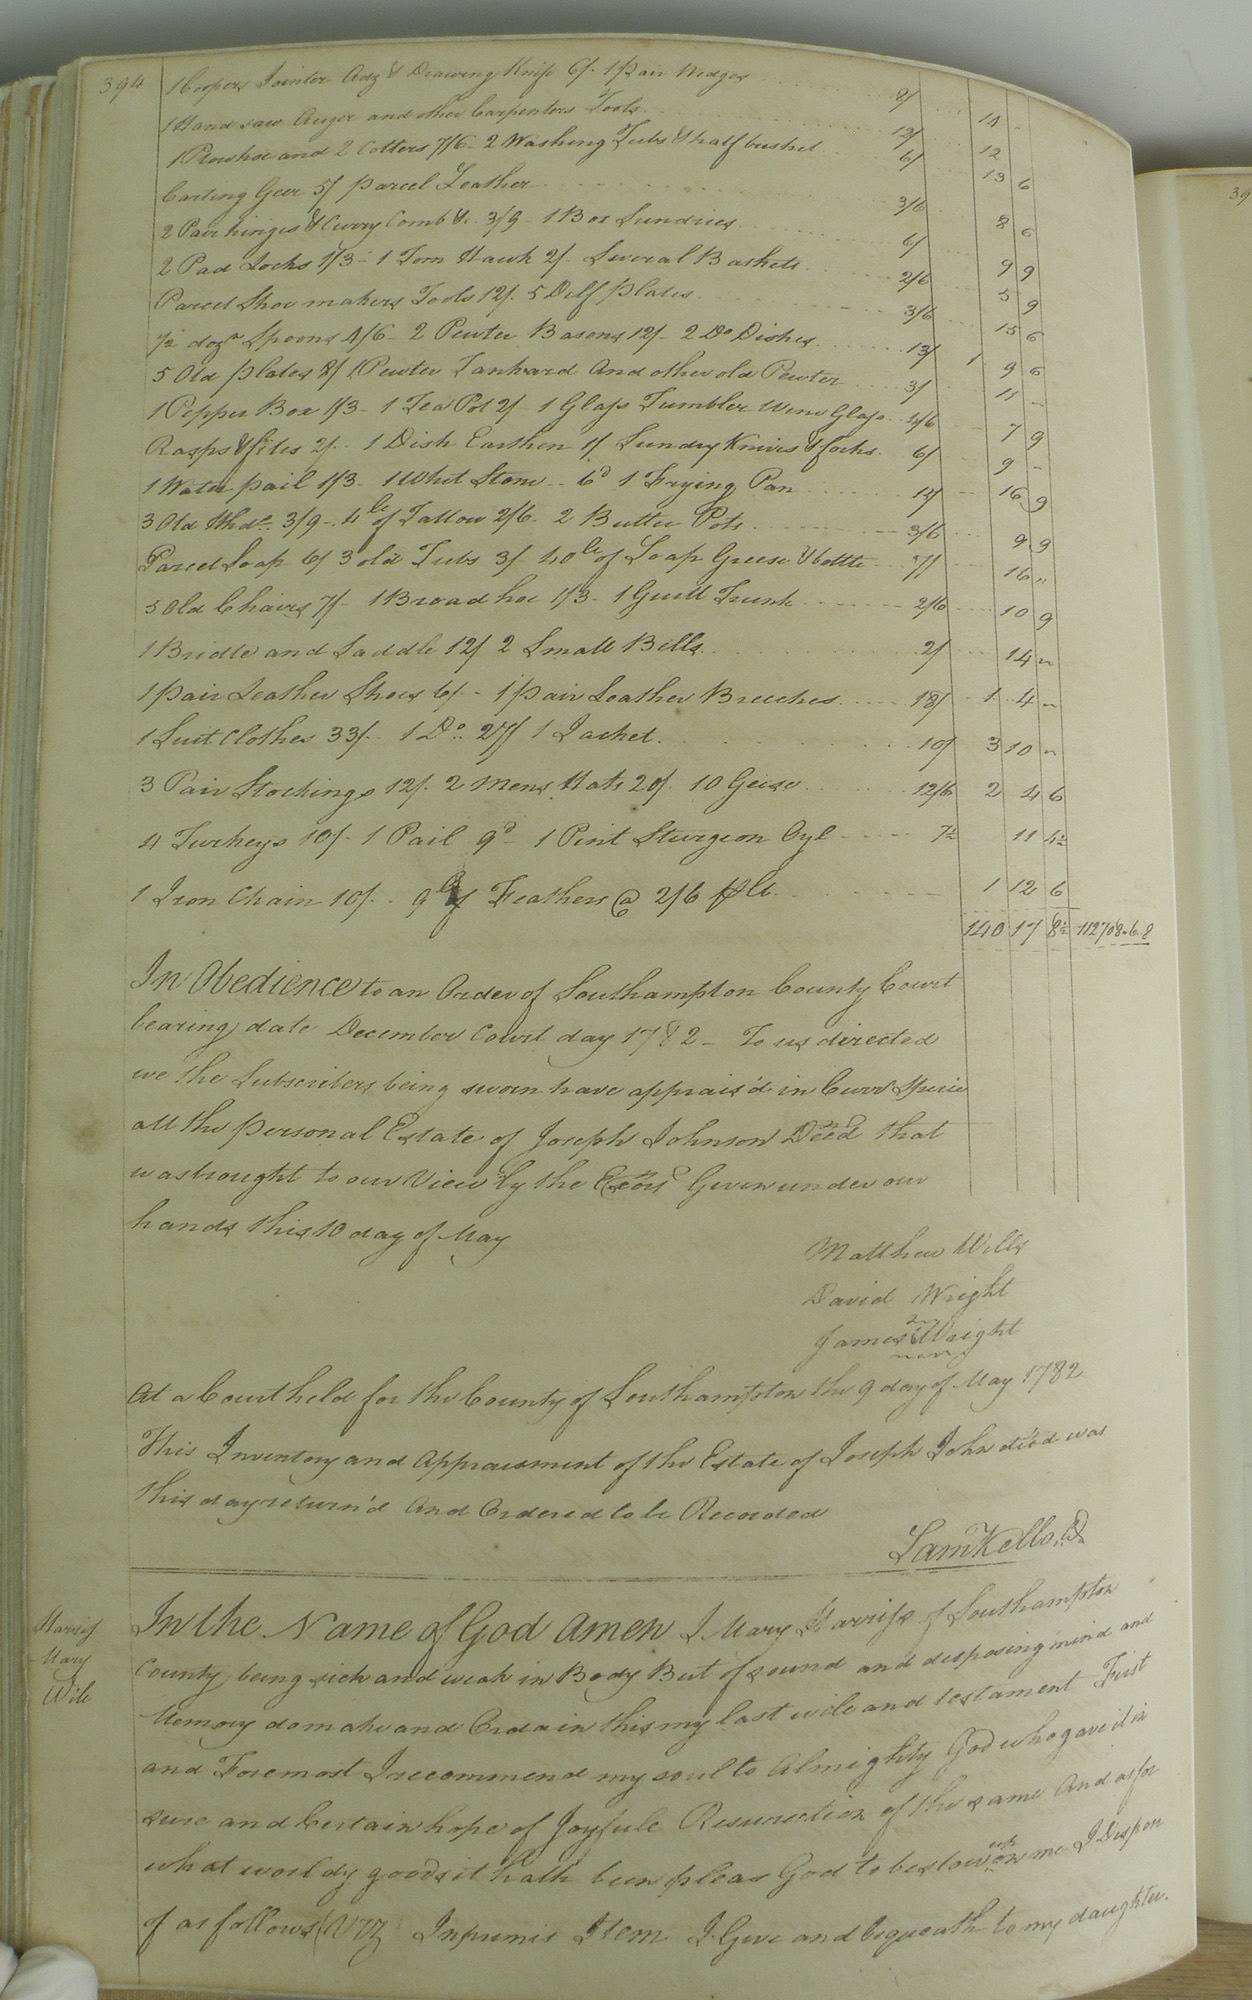 394
1 Coopers Jointer Adg & Drawing Knife 6/. 1 pair Wedges 8/ 14 -
1 Hand saw Auger and other Carpenters Tools 12/ 12
1 Plow hoe and 2 Cotters 7/6 - 2 Washing Tubs & half bushel 6/ 13 6
Carting Geer 5/ parcel Leather 3/6 8 6
2 Pair hinges & Curry Comb &c. 3/9 - 1 Box Sundries 6/ 9 9
2 Pad Locks 1/3 - 1 Tom Hawk 2/. Several Baskets 2/6 5 9
Parcel Shoe makers Tools 12/. 5 Delf plates 3/6 15 6
1/2 dozn Spoons 4/6 - 2 Pewter Basons 12/- 2 Do Dishes 13/ 1 9 6
5 Old plates 8/ 1 Pewter Tankard And other old Pewter 3/ 11 -
1 Pepper Box 1/3 - 1 Tea Pot 2/- 1 Glass Tumbler Wine Glass 4/6 7 9
Rasps & files 2/. 1 Dish Earthen 1/ Sundry Knives & forks 6/ 9 -
1 Water pail 1/3 - 1 Whet Stone - 6d 1 Frying Pan 16 9
3 Old Hhds 3/9 - 4 lb of Tallow 2/6 - 2 Butter Pots 3/6 9 9
Parcel Soap 6/ 3 old Tubs 3/ 40 lb of Soap Greese & bottle 7/ 16 "
5 Old Chairs 7/- 1 Broad hoe 1/3 - 1 Guilt Trunk 2/6 10 9
1 Bridle and Saddle 12/ 2 Small Bells 2/ 14 "
1 pair Leather Shoes 6/ - 1 pair Leather Breeches 18/ 1 4 "
1 Suit Clothes 33/. 1 Do. 27/ 1 Jacket 10/ 3 10 "
3 Pair Stockings 12/. 2 Mens Hats 20/. 10 Geise 12/6 2 4 6
4 Turkeys 10/- 1 Pail 9d - 1 Pint Sturgeon Oyl 7½ 11 4½
1 Iron Chain 10/. 9 lb of Feathers @ 2/6 p lb 1 12 6
140 17 8½
In Obedience to an Order of Southampton County Court
bearing date December Court day 1782 - To us directed
we the Subscribers being sworn have apprais'd in Curr Specie
all the personal Estate of Joseph Johnson Deced that
was brought to our View by the Exors Given under our
hands this 10 day of May
Matthew Wills
David Wright
James Wright
At a Court held for the County of Southampton the 9 day of May 1782
This Inventory and Appraisment of the Estate of Joseph John dec'd was
this day return'd And Ordered to be Recorded
Sam Kello. C.
Harriss
Mary
Wile
In the Name of God Amen I Mary Harriss of Southampton
County being sick and weak in Body But of sound and desposing mind and
Memory do make and Ordain this my last wile and testament First
and Foremost I reccommend my soul to Almighty God who gave it in
sure and Certain hope of Joyfule Resurection of the same And as for
what worldy goods it hath been pleas God to bestow on me I Dispon
of as follows (Vizt) Inprimis Item I Give and bequeath to my daughter.